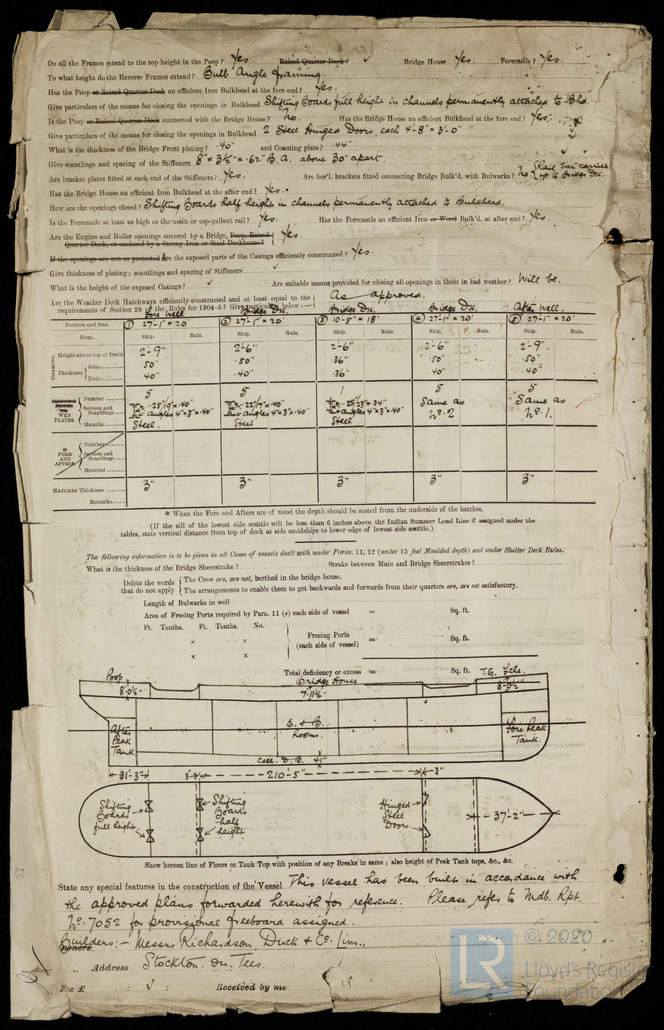 Do all the Frames extend to the top height in the Poop? Yes Raised Quarter Deck? ✓ Bridge House Yes. Forecastle? Yes.
To what height do the Reverse Frames extend? Bulb Angle framing.
Has the Poop or Raised Quarter Deck an efficient Iron Bulkhead at the fore end? Yes.
Give particulars of the means for closing the openings in Bulkhead Shifting Boards full height in channels permanently attached to Bhd.
Is the Poop or Raised Quarter Deck connected with the Bridge House? No. Has the Bridge House an efficient Bulkhead at the fore end? Yes.
Give particulars of the means for closing the openings in Bulkhead 2 Steel Hinged Doors, each 4'-8" × 3'-0"
What is the thickness of the Bridge Front plating? .40" and Coaming plate? .44"
Give scantlings and spacing of the Stiffeners 8" × 3½" × .62" B.A. about 30" apart.
Are bracket plates fitted at each end of the Stiffeners? Yes. Are hor'l. brackets fitted connecting Bridge Bulk'd. with Bulwarks? No. Rail bar carried up to Bridge Dk.
Has the Bridge House an efficient Iron Bulkhead at the after end? Yes.
How are the openings closed? Shifting Boards half height in channels permanently attached to Bulkhead.
Is the Forecastle at least as high as the main or top-gallant rail? Yes. Has the Forecastle an efficient Iron or Wood Bulk'd. at after end? Yes.
Are the Engine and Boiler openings covered by a Bridge, Poop, Raised Quarter Deck, or enclosed by a Strong Iron or Steel Deckhouse? Yes.
If the openings are not so protected Are the exposed parts of the Casings efficiently constructed? Yes.
Give thickness of plating; scantlings and spacing of Stiffeners ✓
What is the height of the exposed Casings? ✓ Are suitable means provided for closing all openings in them in bad weather? Will be.
Are the Weather Deck Hatchways efficiently constructed and at least equal to the requirements of Section 28 of the Rules for 1904-5? Give particulars below:— As approved.
Fore Well. Bridge Dk. Bridge Dk. Bridge Dk. After Well.
Position and Size. ① 27'-1" × 20' ② 27'-1" × 20' ③ 10'-5" × 18' ④ 27'-1" × 20' ⑤ 27'-1" × 20'
Item. Ship. Rule. Ship. Rule. Ship. Rule. Ship. Rule. Ship. Rule.
COAMING Height above top of DECK 2'-9" 2'-6" 2'-6" 2'-6" 2'-9"
Thickness Sides .50" .50" .36" .50" .50"
Ends .40" .40" .36" .40" .40"
WEB PLATES Number 5 5 1 5 5
Section and Scantlings angles 4" × 3" × .40" angles 4" × 3" × .40" angles 4" × 3" × .40" Same as No. 2 Same as No. 1.
Material Steel. Steel Steel
FORE AND AFTERS Number
Section and Scantlings
Material
HATCHES Thickness 3" 3" 3" 3" 3"
Remarks
* When the Fore and Afters are of wood the depth should be stated from the underside of the hatches.
(If the sill of the lowest side scuttle will be less than 6 inches above the Indian Summer Load Line if assigned under the
tables, state vertical distance from top of deck at side amidships to lower edge of lowest side scuttle.)
The following information is to be given in all Cases of vessels dealt with under Paras. 11, 12 (under 15 feet Moulded depth) and under Shelter Deck Rules.
What is the thickness of the Bridge Sheerstrake? Strake between Main and Bridge Sheerstrakes?
Delete the words that do not apply
The Crew are, are not, berthed in the bridge house.
The arrangements to enable them to get backwards and forwards from their quarters are, are not satisfactory.
Length of Bulwarks in well
Area of Freeing Ports required by Para. 11 (e) each side of vessel = Sq. ft.
Ft. Tenths. Ft. Tenths. No.
× ×
× ×
Freeing Ports (each side of vessel) = Sq. ft.
Total deficiency or excess = Sq. ft.
Poop Bridge House T.G. Fcle.
8'-0½" 7'-11½" 8'-0½"
After Peak Tank
E. & B. Rooms.
Fore Peak Tank.
Cell. D. B. 41"
31'-3" 3" 210'-5" 3"
Shifting Boards full height
Shifting Boards half height
Hinged Steel Doors
37'-2"
Show hereon line of Floors or Tank Top with position of any Breaks in same; also height of Peak Tank tops, &c., &c.
State any special features in the construction of the Vessel This vessel has been built in accordance with
the approved plans forwarded herewith for reference. Please refer to Mdb. Rpt.
No. 7052 for provisional freeboard assigned.
Builders:— Messrs Richardson, Duck & Co. Lim.,
„ Address Stockton. on. Tees.
Fee £ : ✓ : Received by me
LR © 2020
Lloyd's Register
Foundation